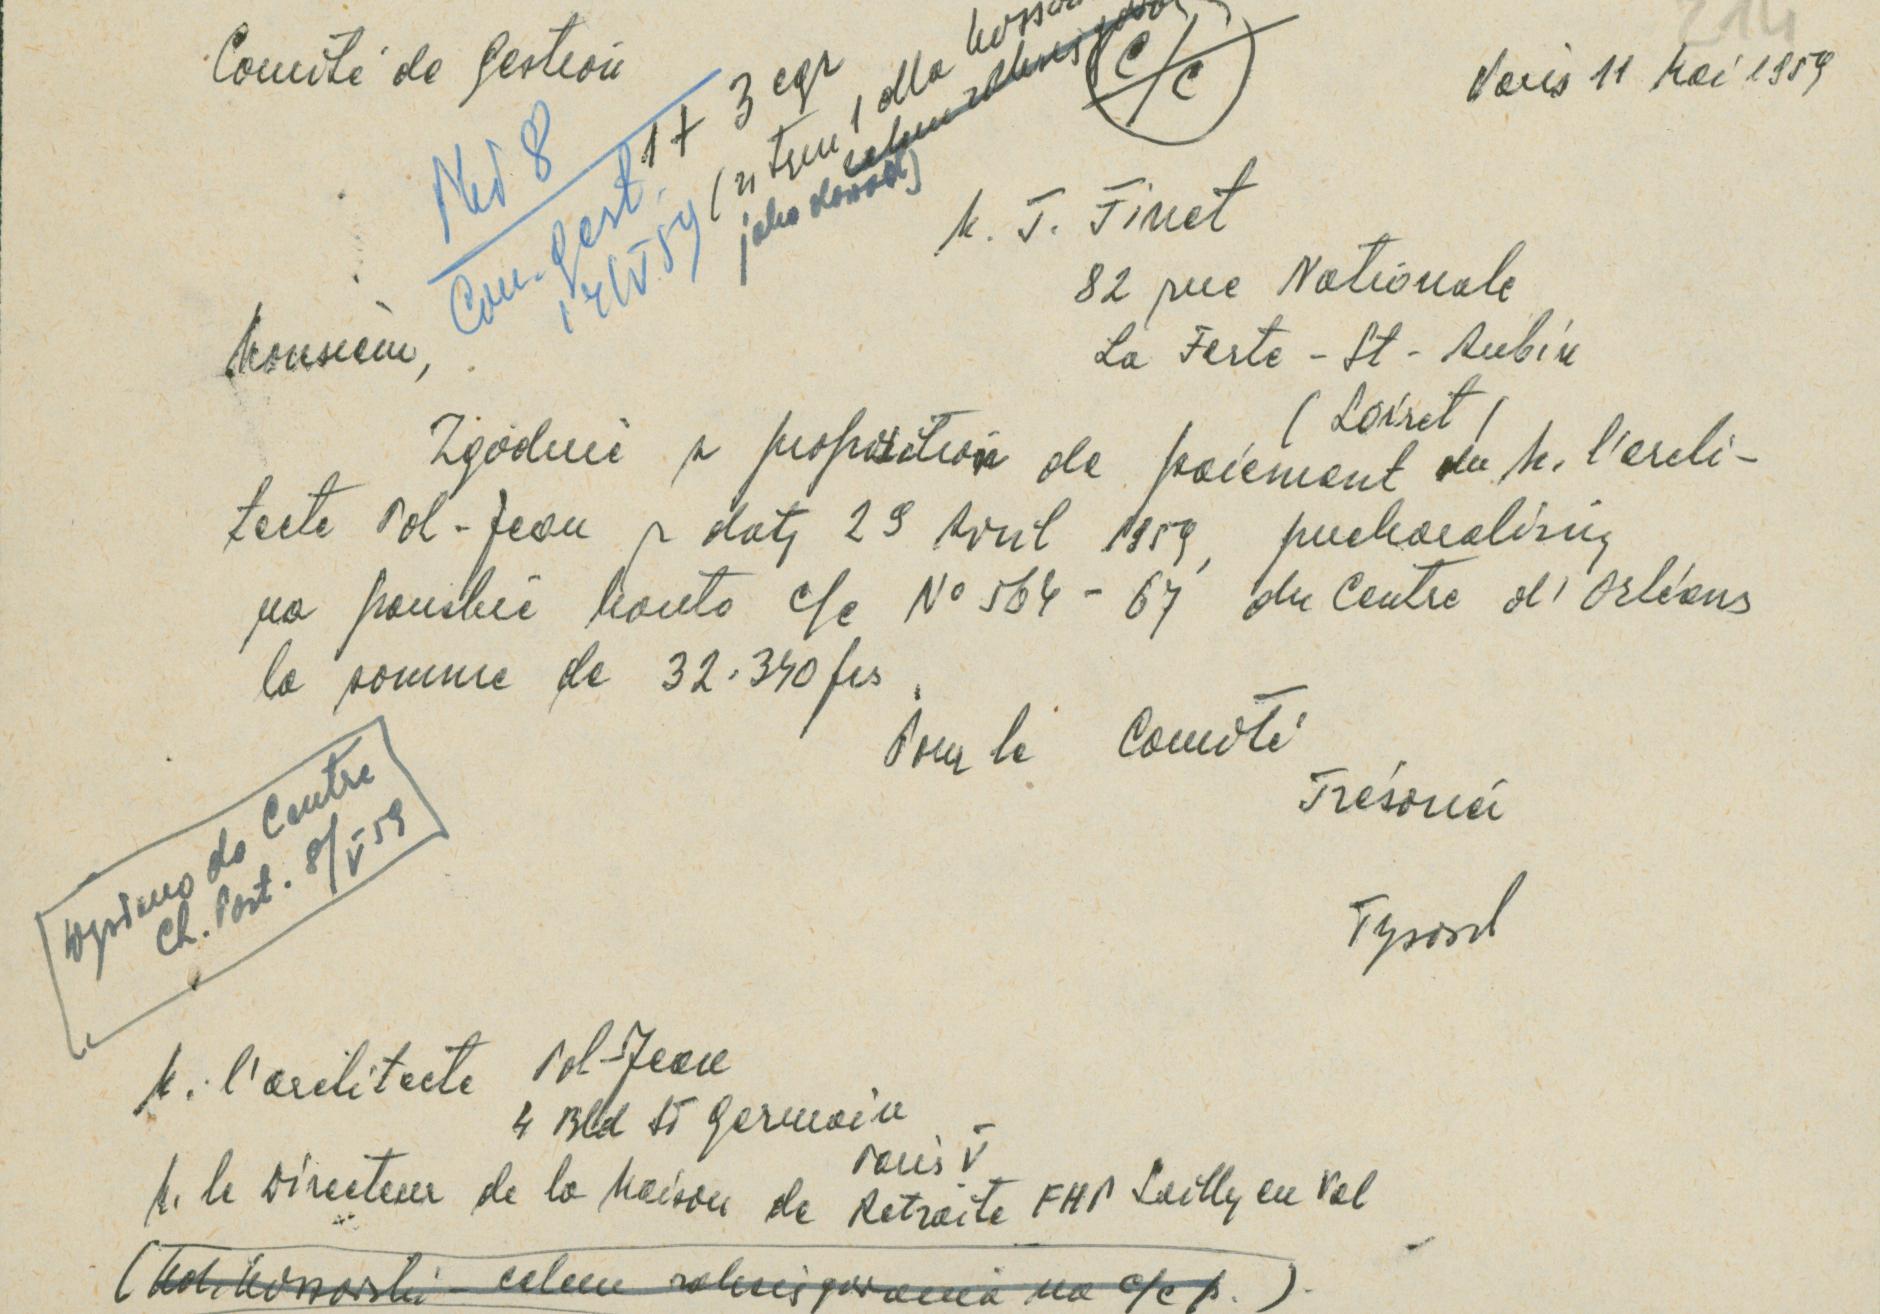 Comité de Gestion
Paris 11 Mai 1959
C/C
1 + 3 egz
(w tym 1 dla
jako dowód)
M. T. Finet
82 rue Nationale
La Ferte - St - Aubin
(Loiret)
Com. Gest.
Monsieur,
Zgodnie z proposition de paiement du M. l'archi-
tecte Pol-Jean z daty 29 Avril 1959, przekazaliśmy
na pańskie konto c/c No 564-67 du Centre d'Orléans
la somme de 32.340 frs.
Pour le Comité
Trésorier
Wysłano do Centre
Ch. Post. 8/V 59
M. l'architecte Pol-Jean
4 Bld St Germain
Paris V
M. le Directeur de la Maison de Retraite FHP Lailly en Val
celem na c/c p.).